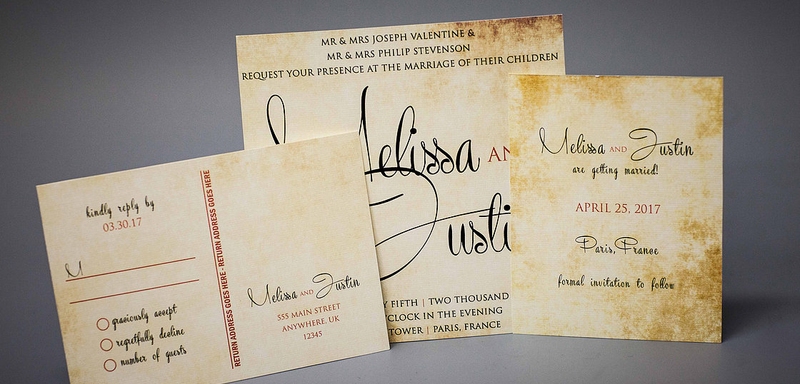 kindly reply by
03.30.17
M
graciously accept
regretfully decline
number of guests
RETURN ADDRESS GOES HERE - RETURN ADDRESS GOES HERE
Melissa AND Justin
555 MAIN STREET
ANYWHERE, UK
12345
MR & MRS JOSEPH VALENTINE &
MR & MRS PHILIP STEVENSON
REQUEST YOUR PRESENCE AT THE MARRIAGE OF THEIR CHILDREN
Melissa
Justi
FIFTH | TWO THOUSAND
CLOCK IN THE EVENING
TOWER | PARIS, FRANCE
Melissa AND Justin
are getting married!
APRIL 25, 2017
Paris, France
formal invitation to follow